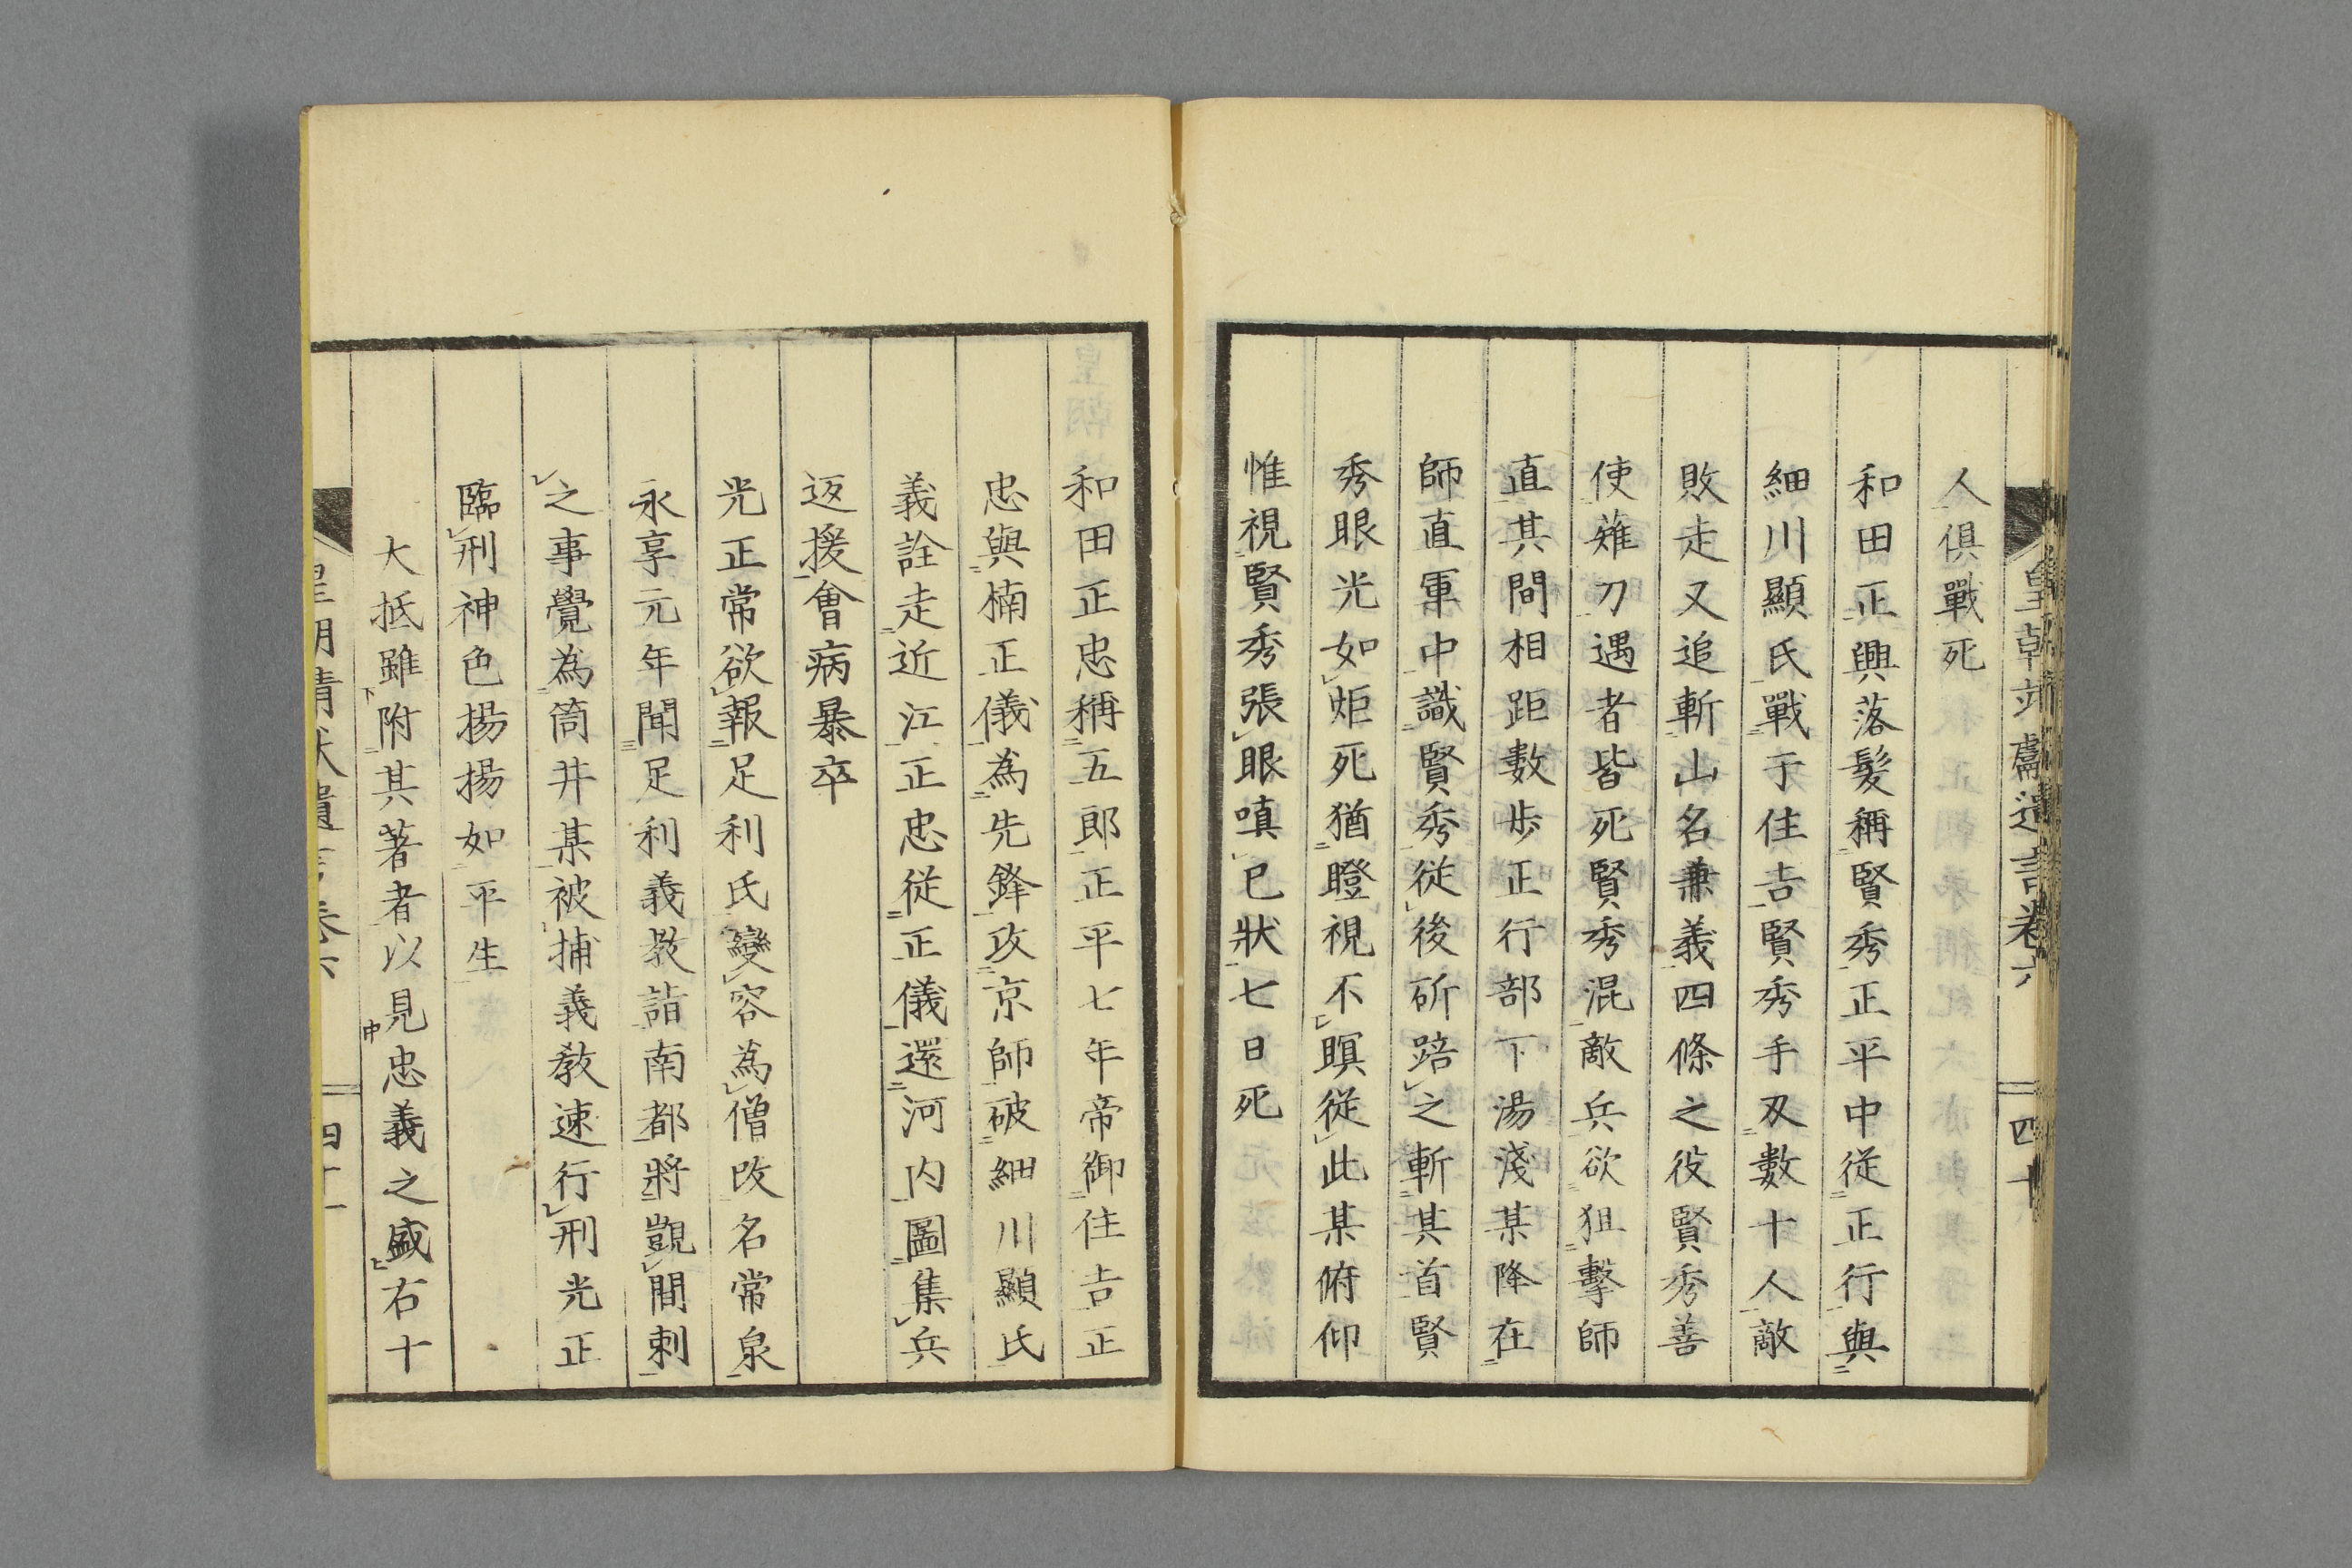 皇朝靖獻遺言卷六
四十
人俱戰死
和田正興落髮稱賢秀正平中從正行與
細川顯氏戰于住吉賢秀手刄數十人敵
敗走又追斬山名兼義四條之役賢秀善
使薙刀遇者皆死賢秀混敵兵欲狙擊師
直其間相距數步正行部下湯淺某降在
師直軍中識賢秀從後斫踣之斬其首賢
秀眼光如炬死猶瞪視不瞑從此某俯仰
惟視賢秀張眼嗔已狀七日死
和田正忠稱五郎正平七年帝御住吉正
忠與楠正儀為先鋒攻京師破細川顯氏
義詮走近江正忠從正儀還河內圖集兵
返援會病暴卒
光正常欲報足利氏變容為僧改名常泉
永享元年聞足利義教詣南都將覬間刺
之事覺為筒井某被捕義教速行刑光正
臨刑神色揚揚如平生
大抵雖附其著者以見忠義之盛右十
皇朝靖獻遺言卷六
四十一